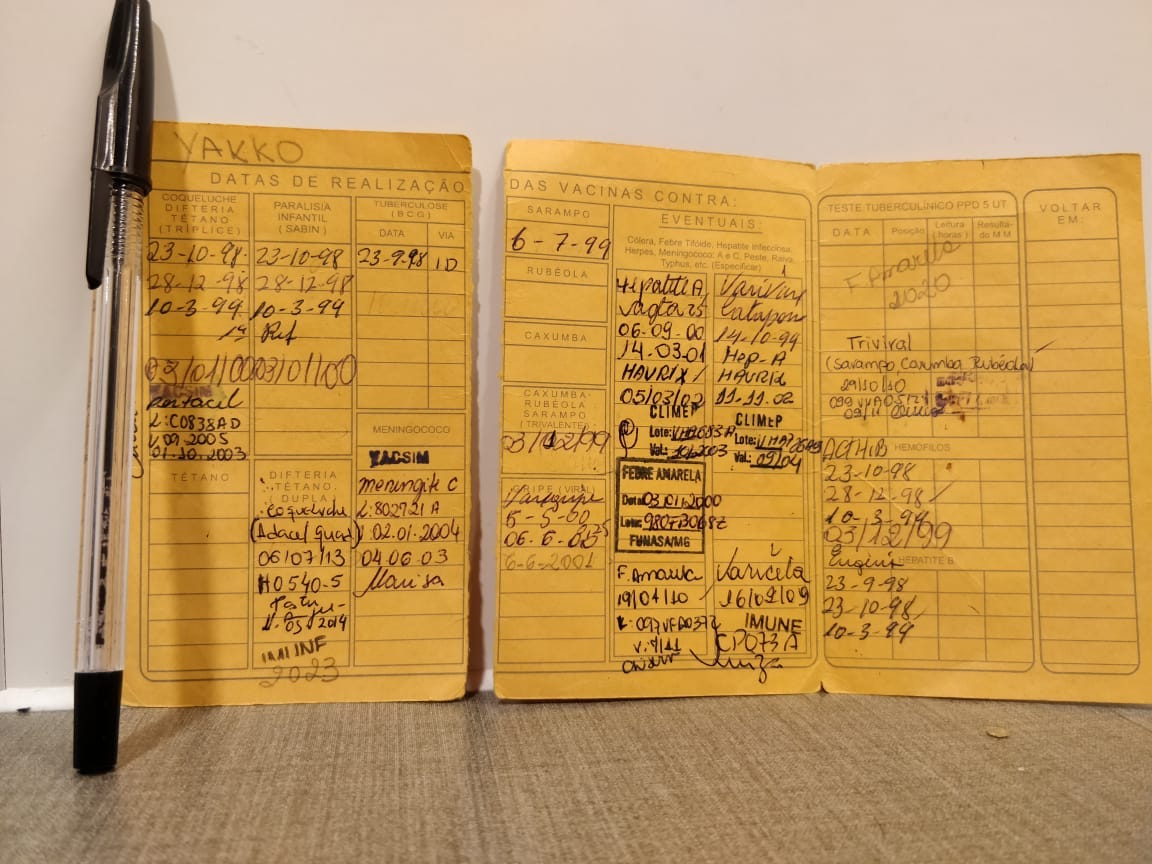 YAKKO
DATAS DE REALIZAÇÃO
COQUELUCHE
DIFTERIA
TÉTANO
(TRÍPLICE)
23-10-98
28-12-98
10-3-99
03/01/00
Pentacil
L:C0838AD
V.09.2005
01.10.2003
TÉTANO
PARALISIA
INFANTIL
(SABIN)
23-10-98
28-12-98
10-3-99
1ª Ref
03/01/00
DIFTERIA
TÉTANO.
(DUPLA)
Coqueluche
(Adacel quad)
06/07/13
H0540-5
05 2014
IMUNE
2023
TUBERCULOSE
(BCG)
DATA
VIA
23-9-98 ID
MENINGOCOCO
VACSIM
meningite C
L:802721A
02.01.2004
04.06.03
Marisa
DAS VACINAS CONTRA:
SARAMPO
6-7-99
RUBÉOLA
CAXUMBA
CAXUMBA
RUBÉOLA
SARAMPO
(TRIVALENTE)
03/12/99
GRIPE (VIRAL)
5-5-00
06.6.
6-6-2001
EVENTUAIS:
Cólera, Febre Tifóide, Hepatite Infecciosa,
Herpes, Meningococo: A e C, Peste, Raiva,
Typhus, etc. (Especificar)
Hepatite A
vaqta 25
06-09-00
14.03.01
HAVRIX
05/03/02
CLIMEP
Lote:
Val.: 2003
FEBRE AMARELA
Data: 03.01.2000
Lote: 980FB068Z
FUNASA/MG
F. Amarela
19/04/10
L:097VFA037Z
V.7/11
Varivax
Catapora
14-10-99
Hep-A
HAVRIX
11.11.02
CLIMEP
Lote:
Val.: 09/04
Varicela
16/09/09
IMUNE
CP073A
TESTE TUBERCULÍNICO PPD 5 UT
DATA
Posição
Leitura
(horas)
Resulta-
do M M
F. Amarela
2020
Triviral
(Sarampo Caxumba Rubéola)
29/10/10
HEMÓFILOS
ACTHIB
23-10-98
28-12-98
10-3-99
03/12/99
HEPATITE B
Engerix
23-9-98
23-10-98
10-3-99
VOLTAR
EM: